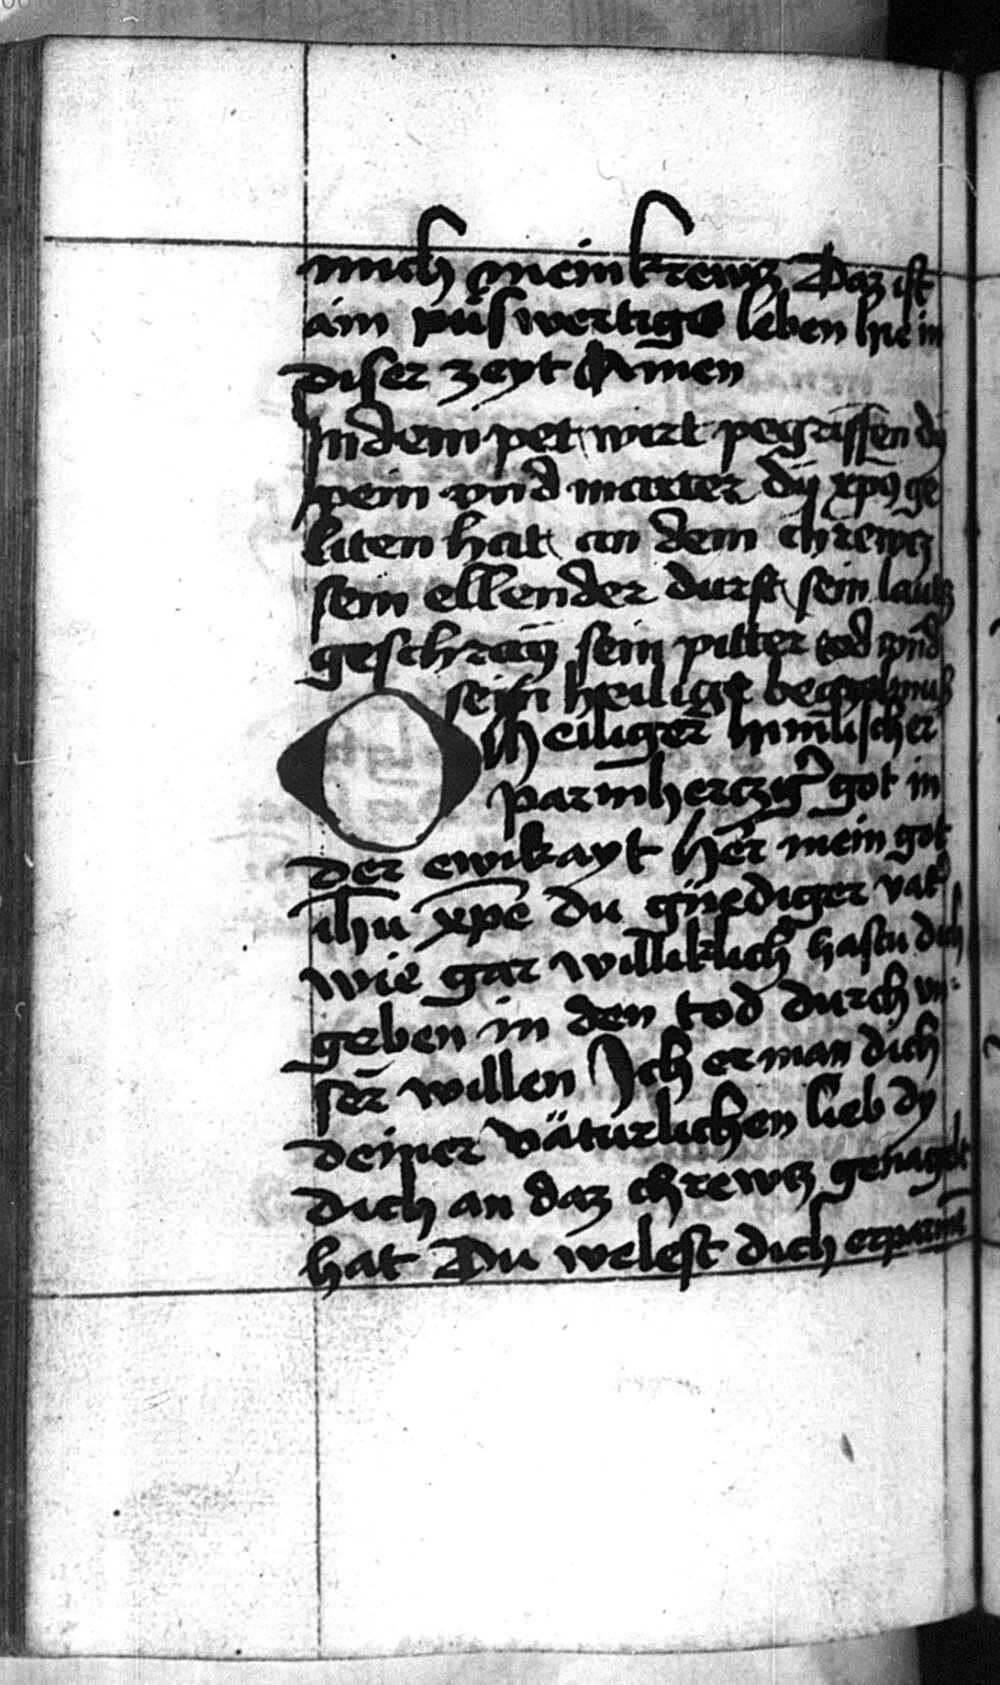 mich mein krewtz Daz ist
ain půswertigs leben hie in
diser zeyt Amen
In dem pet wirt pegriffen dy
pein vnd marter dÿ xp̄s ge
liten hat an dem chrewtz
sein ellender durst sein lautz
geschray sein pitter tod vnd
sein heilige
O heiliger him̄lischer
parm̄hercziger got in
der ewikayt her mein got
ih̄u xp̄e du gnediger vat̓
wie gar williklich hastu dich
geben in den tod durch vn
ser willen Ich erman dich
deiner väturlichen lieb dy
dich an daz chrewtz genagelt
hat Du welest dich erparm̄